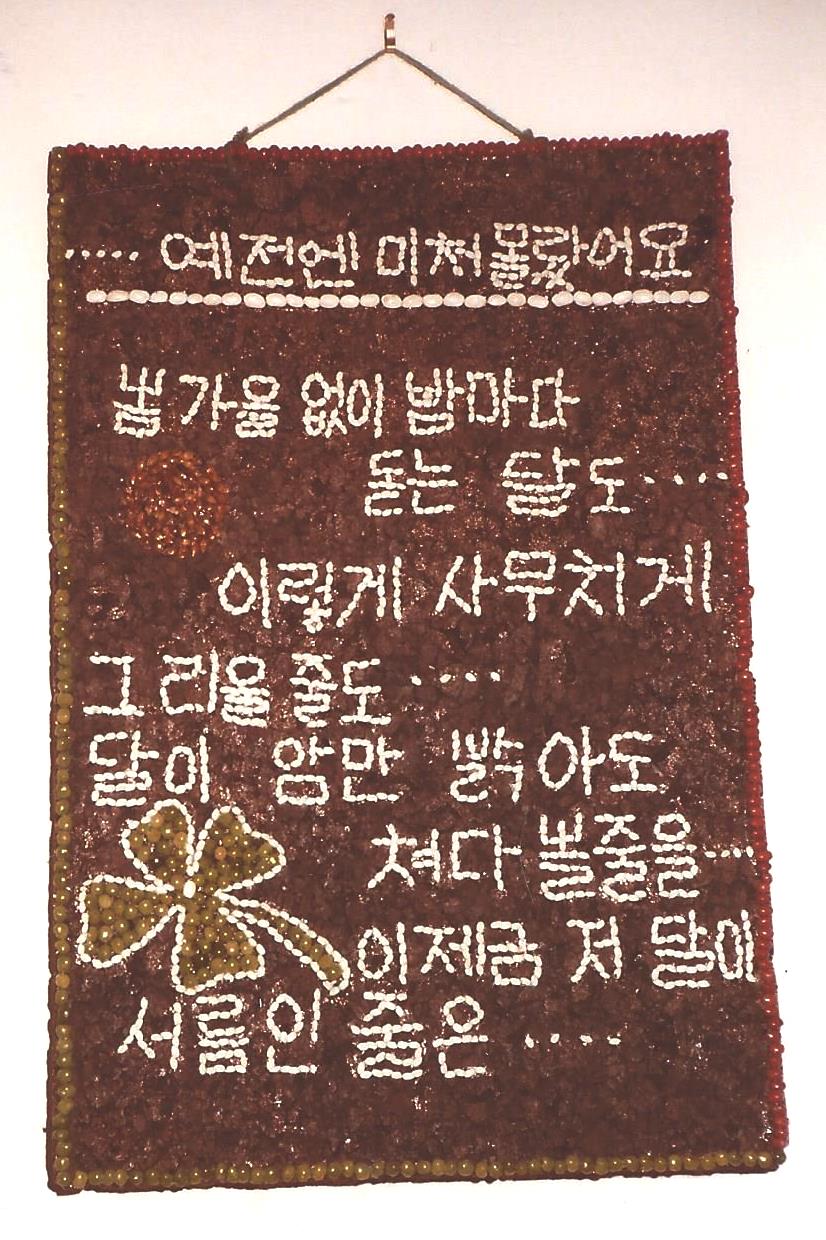 ..... 예전엔 미처몰랐어요
봄 가을 없이 밤마다
돋는 달도....
이렇게 사무치게
그리울 줄도.....
달이 암만 밝아도
쳐다 볼줄을...
이제금 저 달이
서름인 줄은 .....